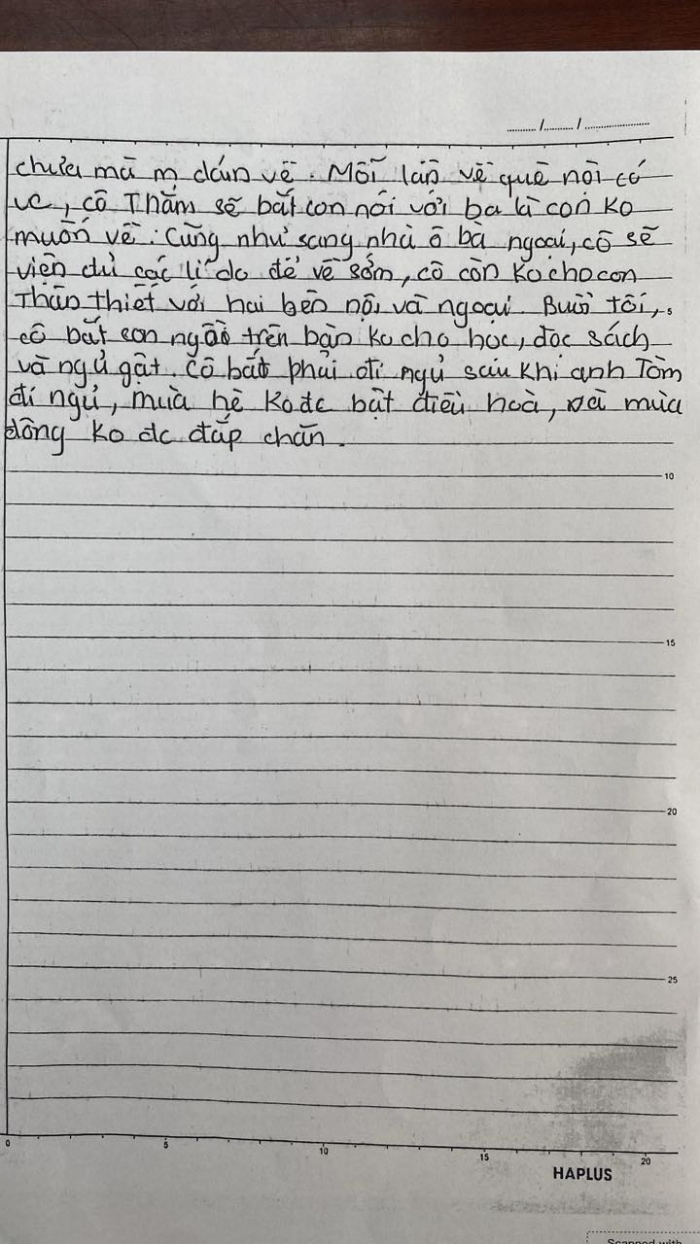 ...../...../..........
chưa mà m dám về. Mỗi lần về quê nội có
vc, cô Thắm sẽ bắt con nói với ba là con ko
muốn về. Cũng như sang nhà ô bà ngoại, cô sẽ
viện đủ các lí do để về sớm, cô còn ko cho con
Thân thiết với hai bên nội và ngoại. Buổi tối,
cô bắt con ngồi trên bàn ko cho học, đọc sách
và ngủ gật. Cô bắt phải đi ngủ sau khi anh Tôm
đi ngủ, mùa hè ko đc bật điều hoà, và mùa
đông ko đc đắp chăn.
10
15
20
25
0 5 10 15 20
HAPLUS
Scanned with